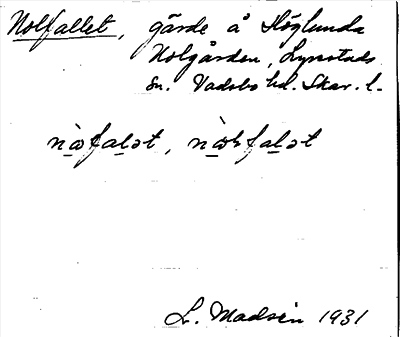 Nolfallet, gärde å Höglunda
Nolgården, Lyrestads
sn. Vadsbo hd. Skar. l.
nàfalət, nàlfalət
L. Madsén 1931